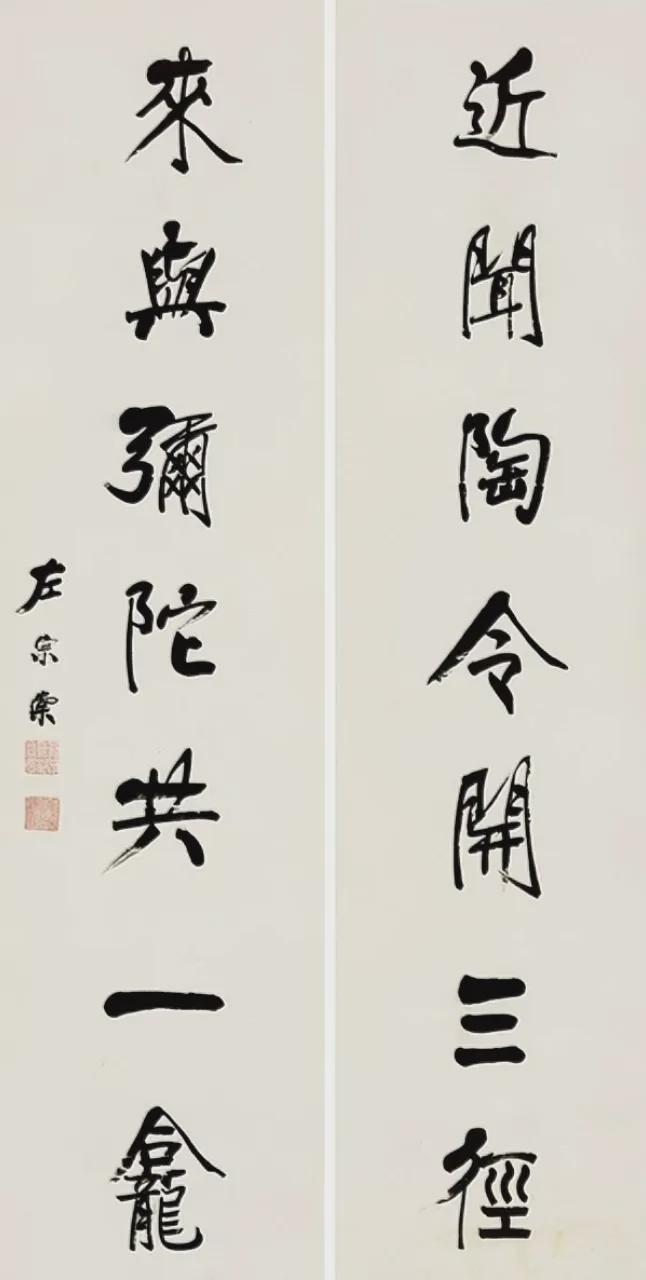 近聞陶令開三徑
來與彌陀共一龕
左宗棠